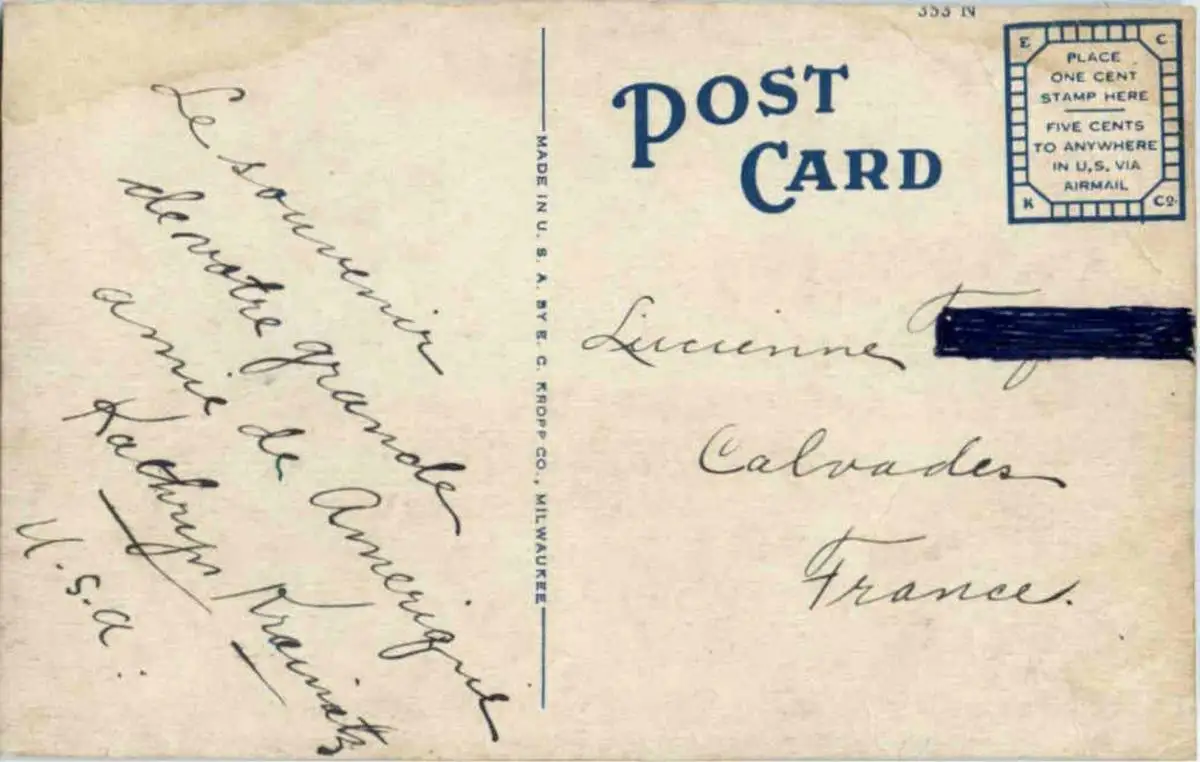 Le souvenir
de votre grande
amie de Amerique
Kathryn
U.S.A.
MADE IN U. S. A. BY E. C. KROPP CO., MILWAUKEE
353 N
POST
CARD
E C
PLACE
ONE CENT
STAMP HERE
FIVE CENTS
TO ANYWHERE
IN U.S. VIA
AIRMAIL
K CO.
Lucienne
Calvados
France.